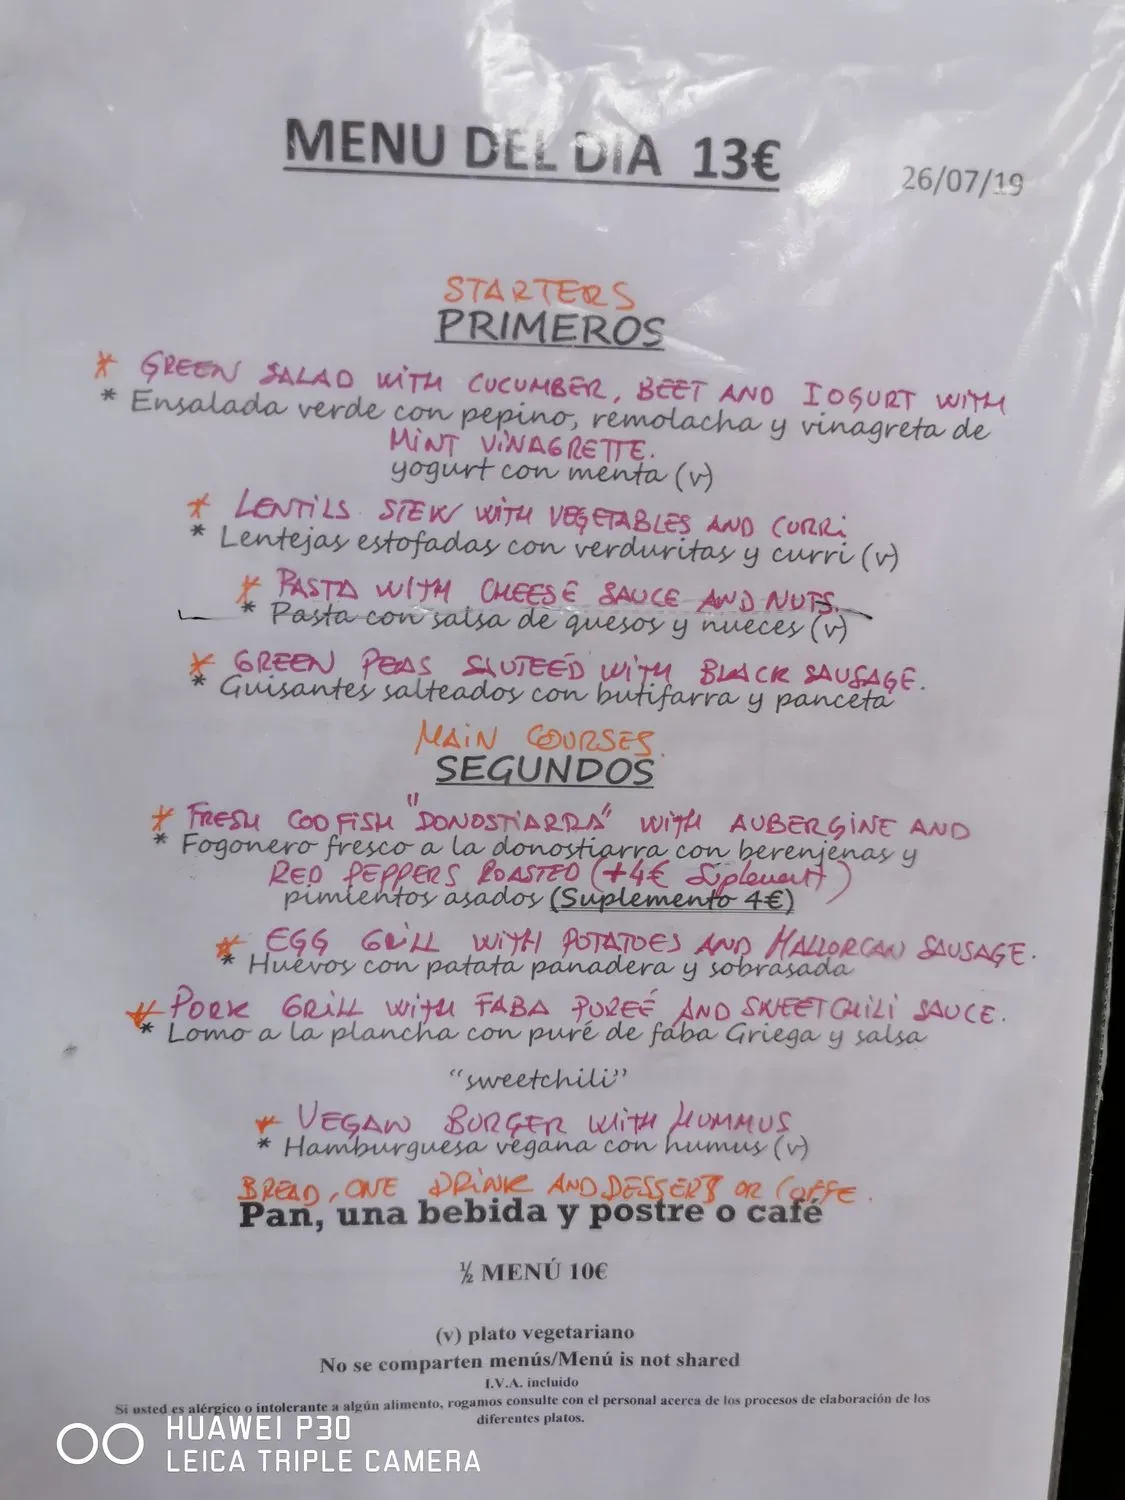 MENU DEL DIA 13€
26/07/19
STARTERS
PRIMEROS
* GREEN SALAD WITH CUCUMBER, BEET AND IOGURT WITH
* Ensalada verde con pepino, remolacha y vinagreta de
MINT VINAGRETTE.
yogurt con menta (v)
* LENTILS STEW WITH VEGETABLES AND CURRI
* Lentejas estofadas con verduritas y curri (v)
* PASTA WITH CHEESE SAUCE AND NUTS.
* Pasta con salsa de quesos y nueces (v)
* GREEN PEAS SAUTEED WITH BLACK SAUSAGE.
* Guisantes salteados con butifarra y panceta
MAIN COURSES.
SEGUNDOS
* FRESH CODFISH "DONOSTIARRA" WITH AUBERGINE AND
* Fogonero fresco a la donostiarra con berenjenas y
RED PEPPERS ROASTED (+4€ Suplement)
pimientos asados (Suplemento 4€)
* EGG GRILL WITH POTATOES AND MALLORCAN SAUSAGE.
* Huevos con patata panadera y sobrasada
* PORK GRILL WITH FABA PUREÉ AND SWEETCHILI SAUCE.
* Lomo a la plancha con puré de faba Griega y salsa
"sweetchili"
* VEGAN BURGER WITH HUMMUS
* Hamburguesa vegana con humus (v)
BREAD, ONE DRINK AND DESSERTS OR COFFE.
Pan, una bebida y postre o café
½ MENÚ 10€
(v) plato vegetariano
No se comparten menús/Menú is not shared
I.V.A. incluido
Si usted es alérgico o intolerante a algún alimento, rogamos consulte con el personal acerca de los procesos de elaboración de los
diferentes platos.
HUAWEI P30
LEICA TRIPLE CAMERA